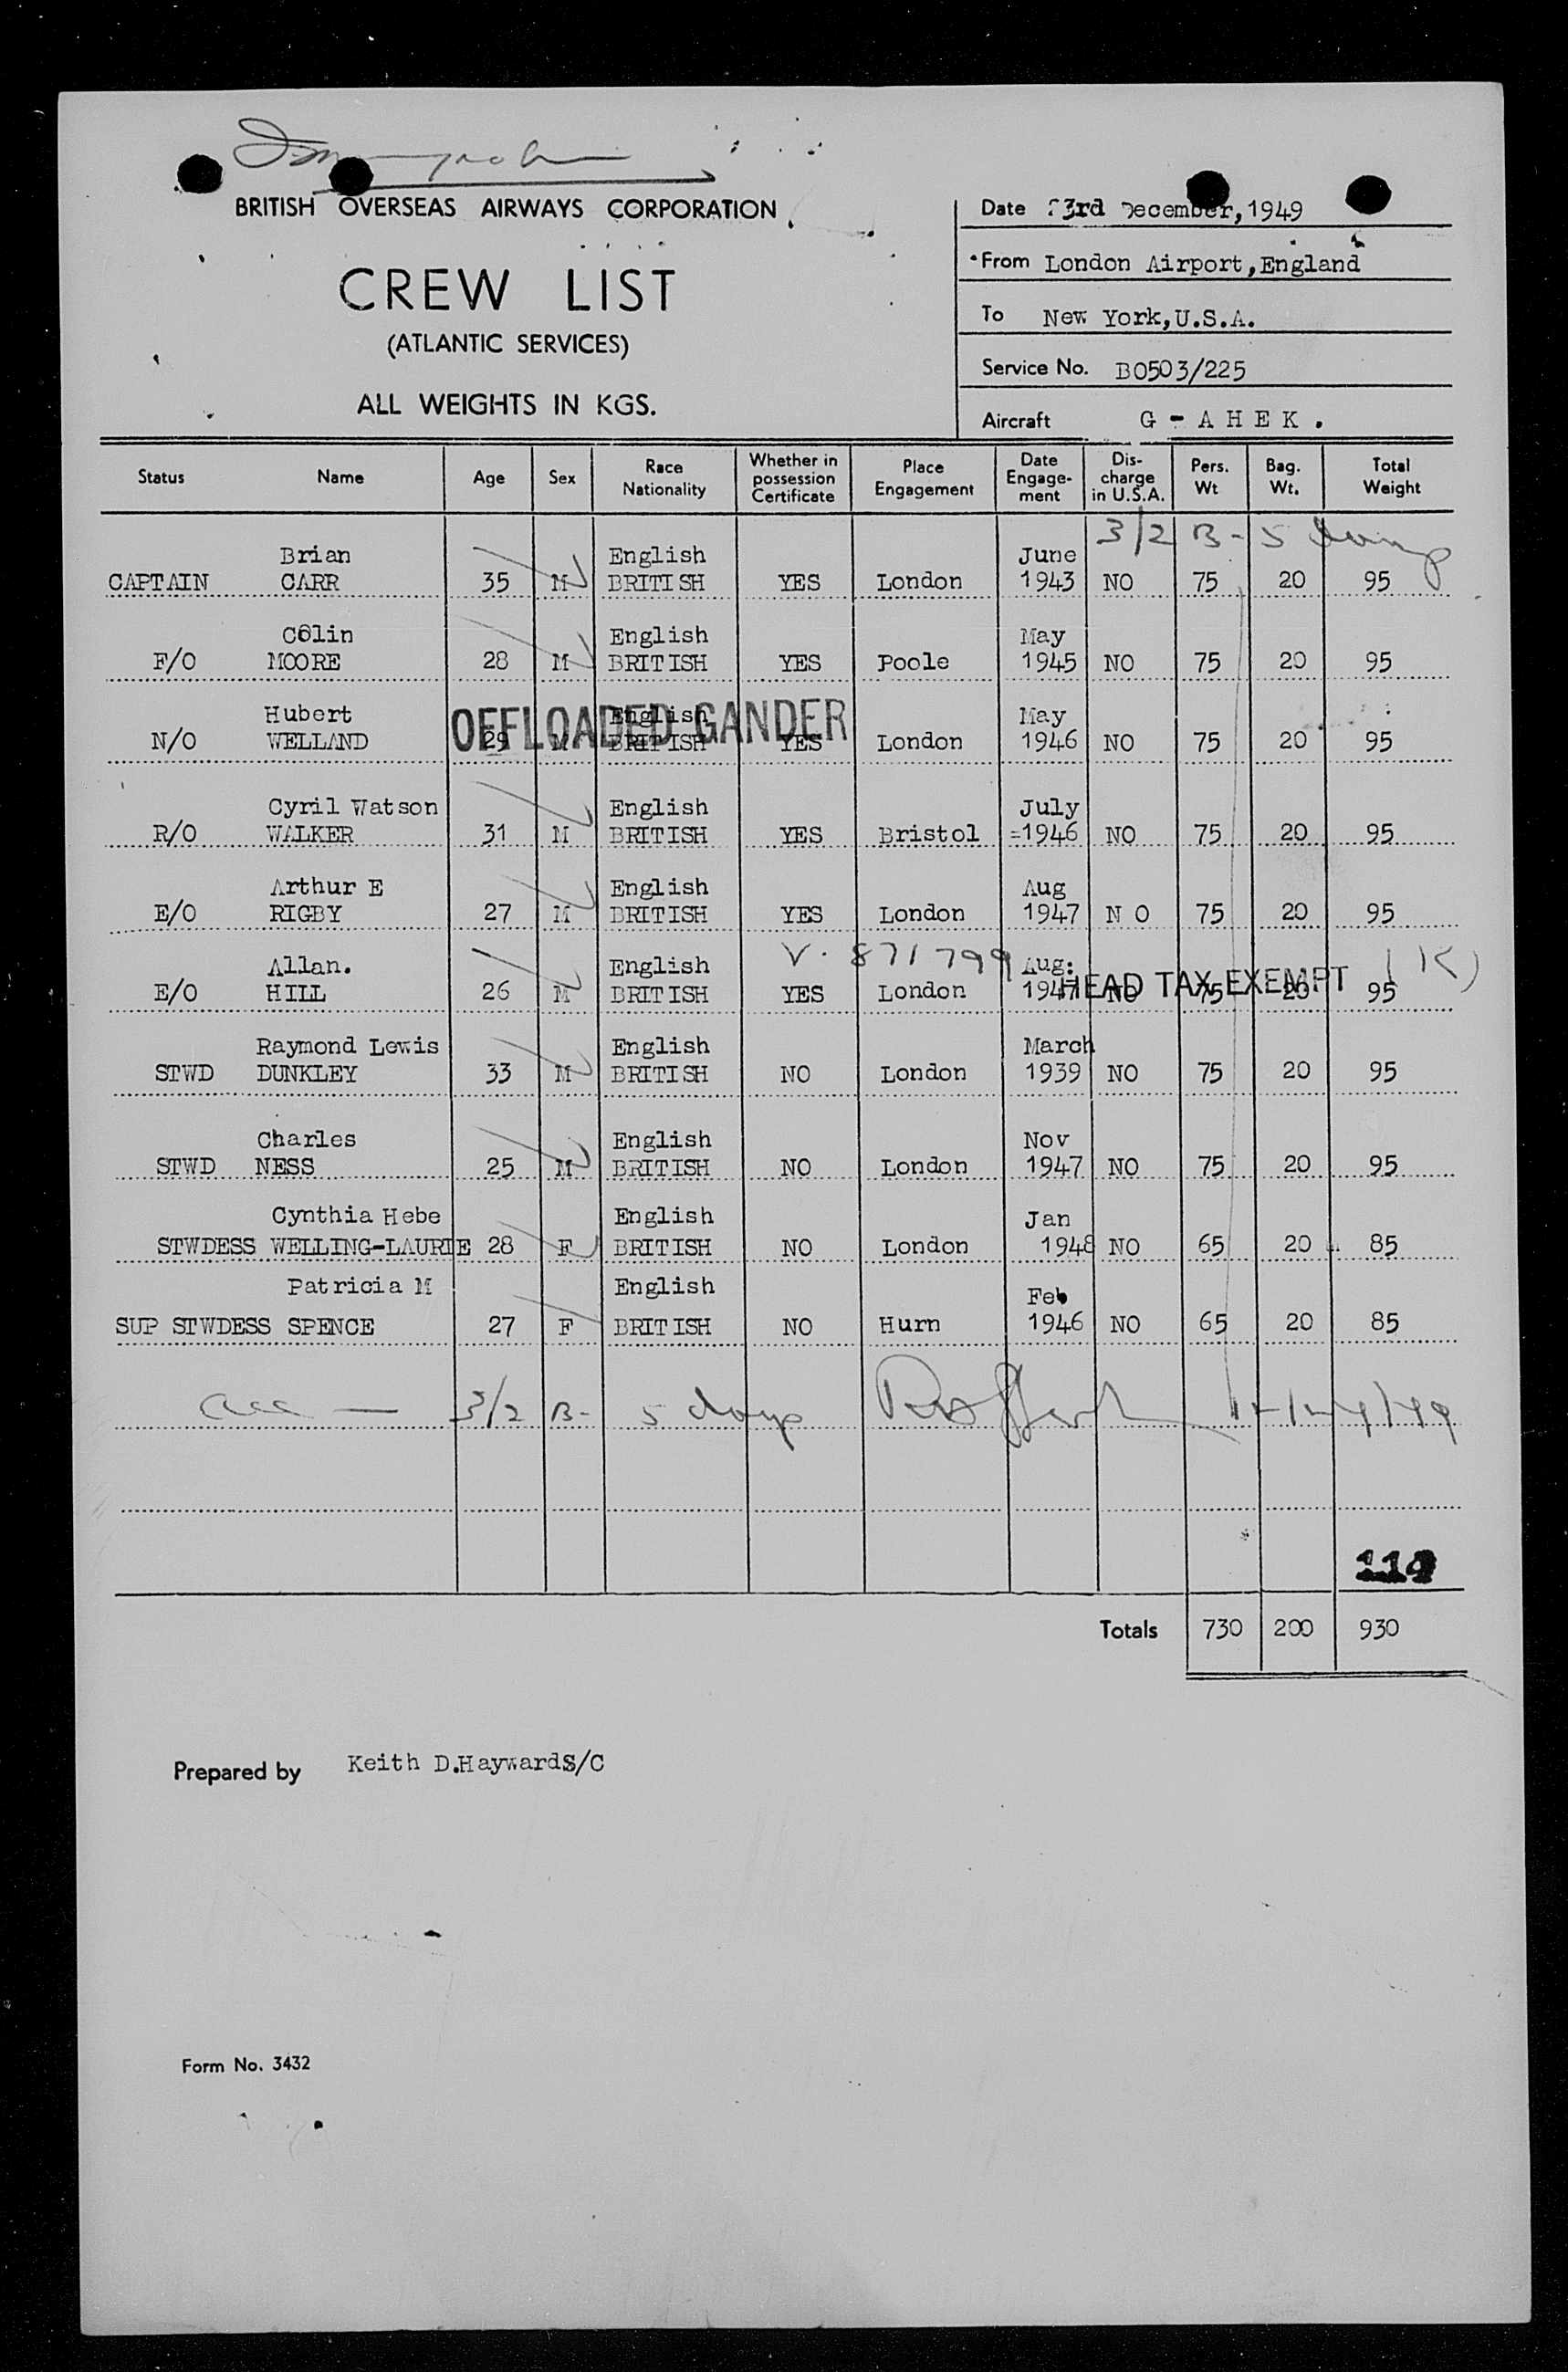 BRITISH OVERSEAS AIRWAYS CORPORATION
CREW LIST
(ATLANTIC SERVICES)
ALL WEIGHTS IN KGS.
Date 23rd December, 1949
From London Airport, England
To New York, U.S.A.
Service No. BO503/225
Aircraft G - A H E K .
Status Name Age Sex Race Nationality Whether in possession Certificate Place Engagement Date Engage-ment Dis-charge in U.S.A. Pers. Wt Bag. Wt. Total Weight
3/2 B - 5 days
Brian English June
CAPTAIN CARR 35 M BRITISH YES London 1943 NO 75 20 95
Colin English May
F/O MOORE 28 M BRITISH YES Poole 1945 NO 75 20 95
OFFLOADED GANDER
Hubert English May
N/O WELLAND 29 M BRITISH YES London 1946 NO 75 20 95
Cyril Watson English July
R/O WALKER 31 M BRITISH YES Bristol =1946 NO 75 20 95
Arthur E English Aug
E/O RIGBY 27 M BRITISH YES London 1947 N O 75 20 95
V. 871799 HEAD TAX EXEMPT (K)
Allan. English Aug:
E/O HILL 26 M BRITISH YES London 1947 NO 75 20 95
Raymond Lewis English March
STWD DUNKLEY 33 M BRITISH NO London 1939 NO 75 20 95
Charles English Nov
STWD NESS 25 M BRITISH NO London 1947 NO 75 20 95
Cynthia Hebe English Jan
STWDESS WELLING-LAURIE 28 F BRITISH NO London 1948 NO 65 20 85
Patricia M English Feb
SUP STWDESS SPENCE 27 F BRITISH NO Hurn 1946 NO 65 20 85
3/2 B- 5 days
Totals 730 200 930
Prepared by Keith D.Hayward S/C
Form No. 3432